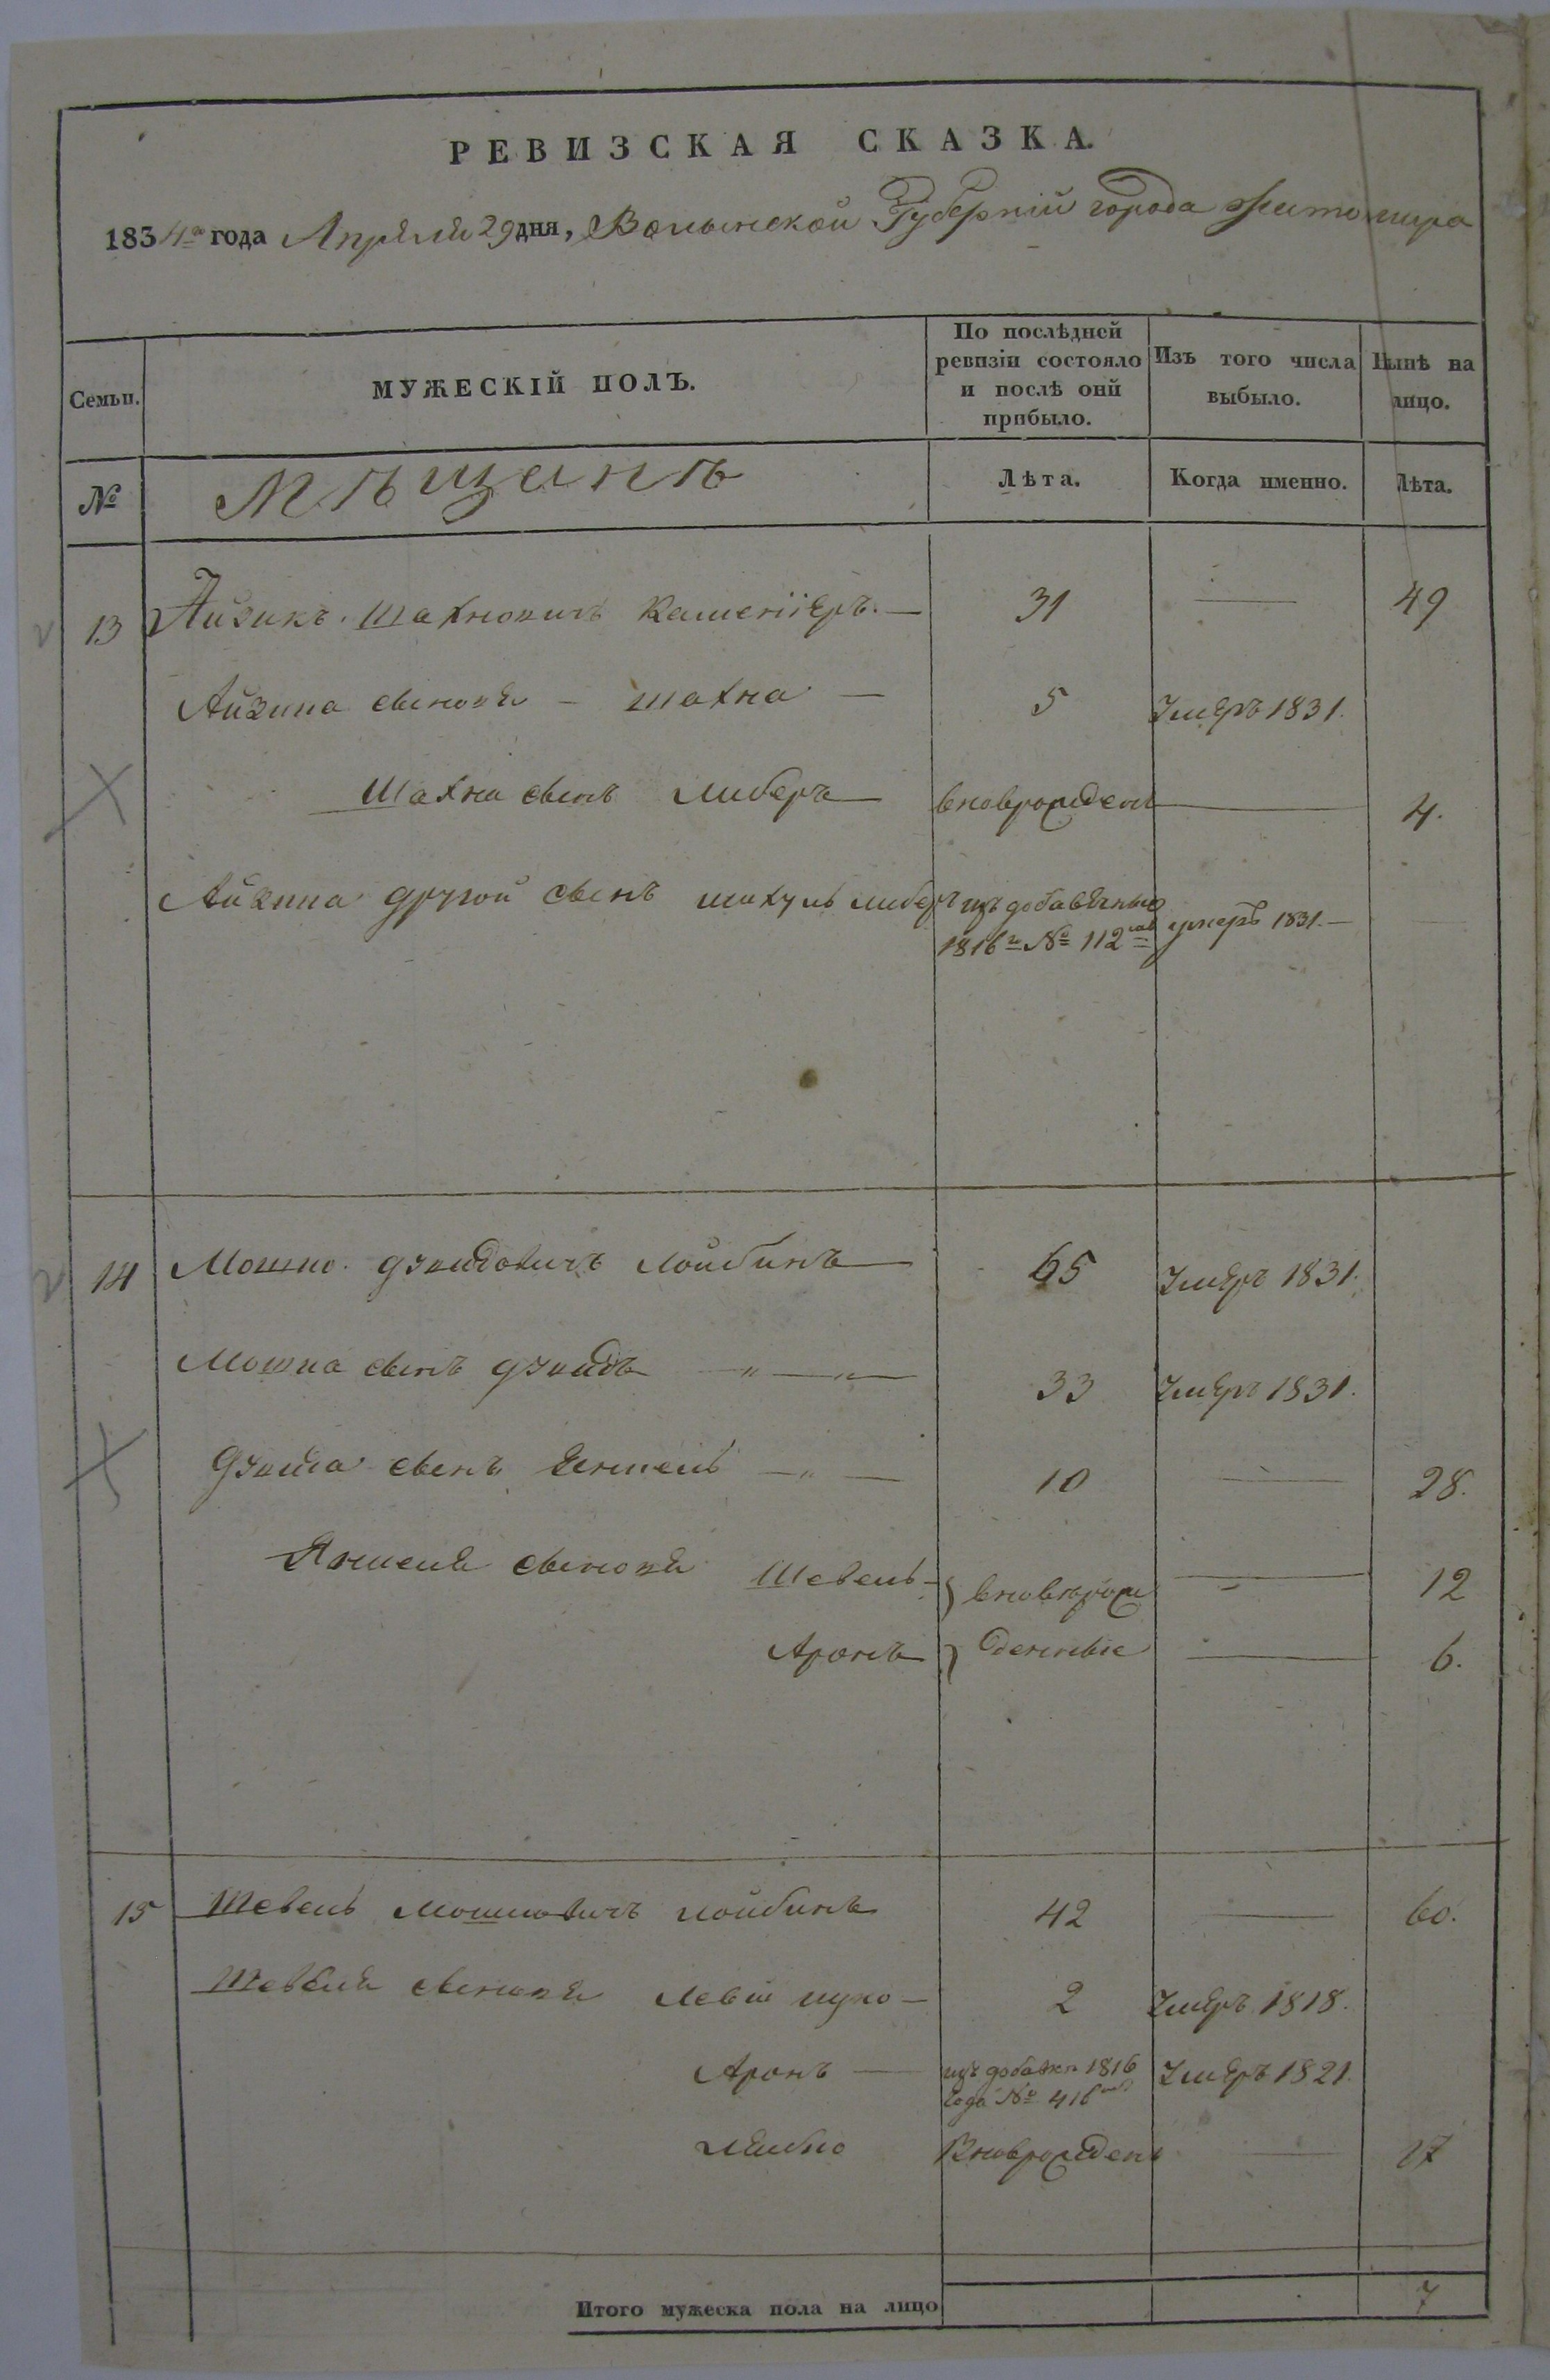 РЕВИЗСКАЯ СКАЗКА.
1834го года Апреля 29 дня, Волынской Губерніи города Житомира
Семьи.
МУЖЕСКІЙ ПОЛЪ.
По послѣдней ревизіи состояло и послѣ оній прибыло.
Изъ того числа выбыло.
Нынѣ на лицо.
№
Мѣщанѣ
Лѣта.
Когда именно.
Лѣта.
13 Айзикъ Шахновичъ — 31 — 49
Айзика сыновья — Шахна — 5 Умеръ 1831.
Шахны сынъ Либеръ вноврожденъ — 4.
Айзика другой сынъ либеръ изъ добавочныхъ умеръ 1831. —
1816г № 112
14 Мошко лойбинъ 65 Умеръ 1831.
Мошка сынъ —"—"— 33 Умеръ 1831.
сынъ Янкель —"— 10 — 28.
Янкеля сыновья Шевель } вноврож — 12
Аронъ } денные — 6.
15 Шевель Мошковичъ лойбинъ 42 — 60.
Шевеля сыновья — 2 Умеръ 1818.
Аронъ — изъ добавки 1816 Умеръ 1821.
года № 416
Лейба Вноврожденъ — 17
Итого мужеска пола на лицо 7